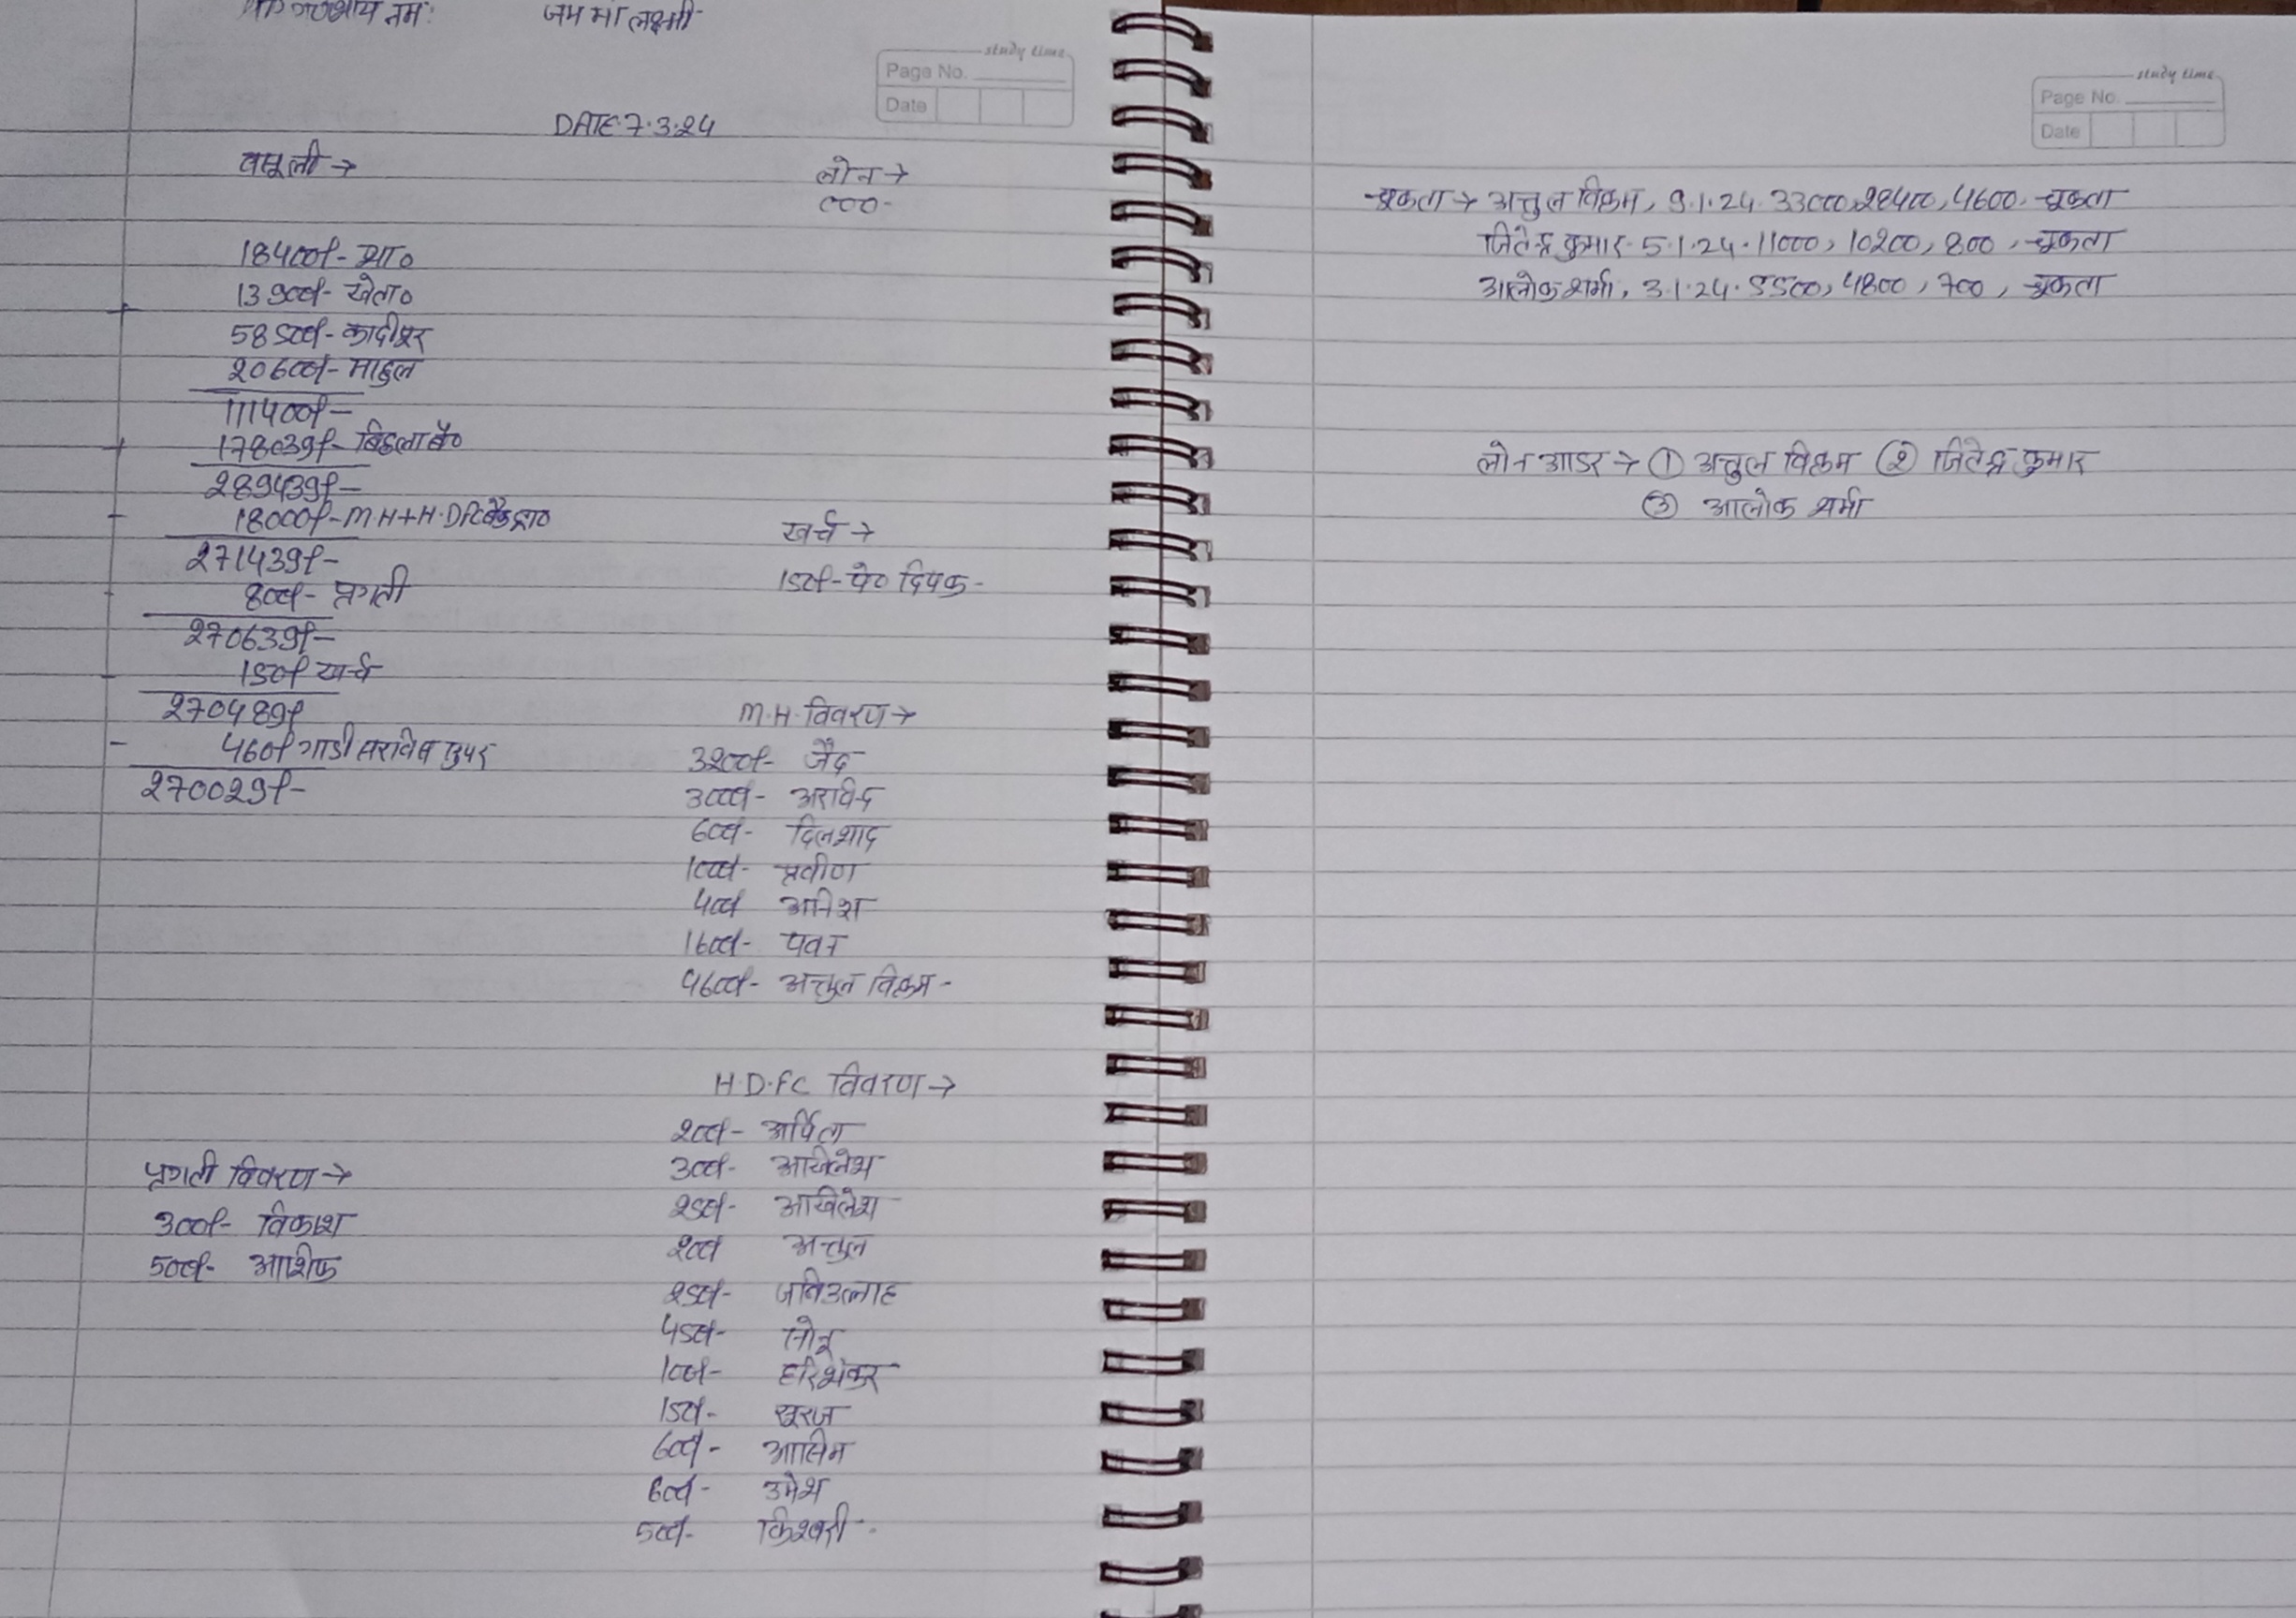 गणेशाय नमः जय मां लक्ष्मी
study time
Page No.
Date
DATE 7.3.24
वसूली →
18400/- शा०
13900/- खेता०
+
58500/- कादीपुर
20600/- माहुल
111400/-
+ 178039/- बिडला बै०
289439/-
- 18000/- M.H+H.DFC बैंक द्वा०
271439/-
- 800/- प्रगती
270639/-
- 150/ खर्च
270489/
- 460/ गाडी सरविस सुपर
270029/-
प्रगती विवरण →
300/- विकाश
500/- आशिफ
लोन →
000-
खर्च →
150/- पे० दिपक-
M.H. विवरण →
3200/- जैद
3000/- अरविन्द
600/- दिलशाद
1000/- प्रवीण
400/ अनिश
1600/- पवन
4600/- अत्तुल विक्रम-
H.D.FC विवरण →
200/- अर्पिता
300/- अखिलेश
250/- अखिलेश
200/ अत्तुल
250/- जविउल्लाह
450/- सोनू
100/- हरिशंकर
150/- सूरज
600/- आसिम
600/- उमेश
500/- किश्वरी-
study time
Page No.
Date
चूकता → अत्तुल विक्रम, 9.1.24. 33000, 28400, 4600, चूकता
जितेन्द्र कुमार- 5.1.24. 11000, 10200, 800, चूकता
आलोक शर्मा, 3.1.24. 5500, 4800, 700, चूकता
लोन आडर → ① अत्तुल विक्रम ② जितेन्द्र कुमार
③ आलोक शर्मा